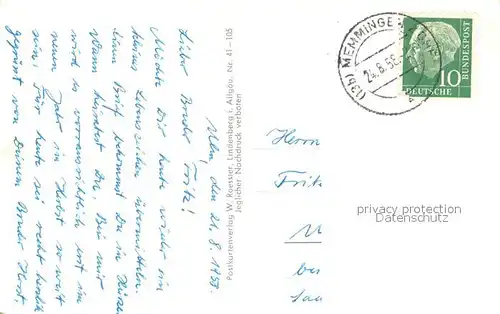 Ulm, den 21. 8. 1958
Lieber Bruder Fritz!
Möchte Dir heute wieder ein
kleines Lebenszeichen übermitteln.
Einen Brief bekommst Du in Kürze.
Wann heiratest Du, Bei mir
wird es voraussichtlich erst im
neuen Jahr im Herbst so weit
sein. Für heute sei recht herzlich
gegrüsst von Deinem Bruder Horst.
Postkartenverlag W. Roessler, Lindenberg i. Allgäu. Nr. 41-105
Jeglicher Nachdruck verboten
(13b) MEMMINGEN
10
DEUTSCHE
BUNDESPOST
Herrn
Fritz
privacy protection
DATENSCHUTZ
bei